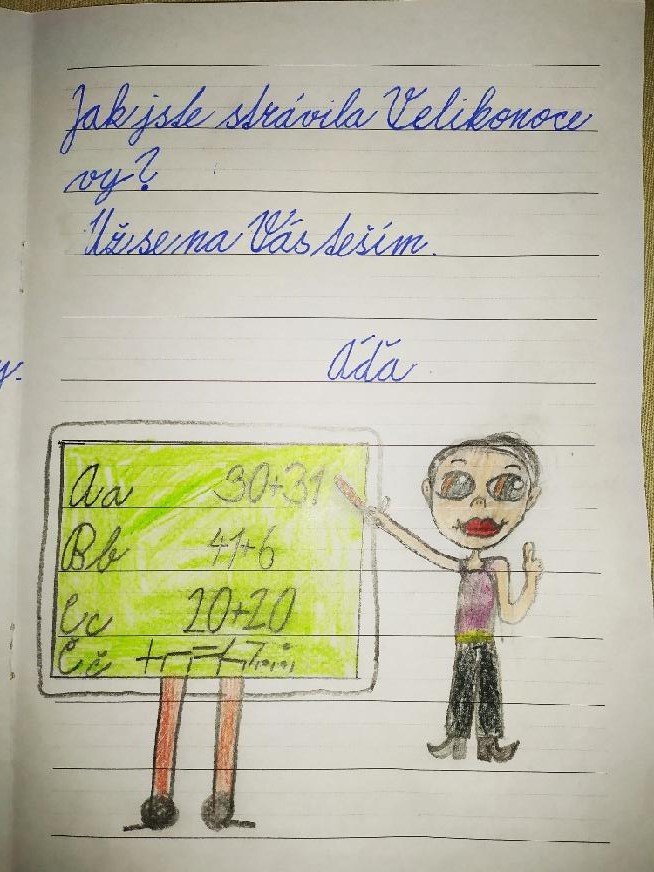 Jak jste strávila Velikonoce
vy?
Už se na Vás teším.
Áďa
Aa 30+31
Bb 41+6
Cc 20+20
Čč